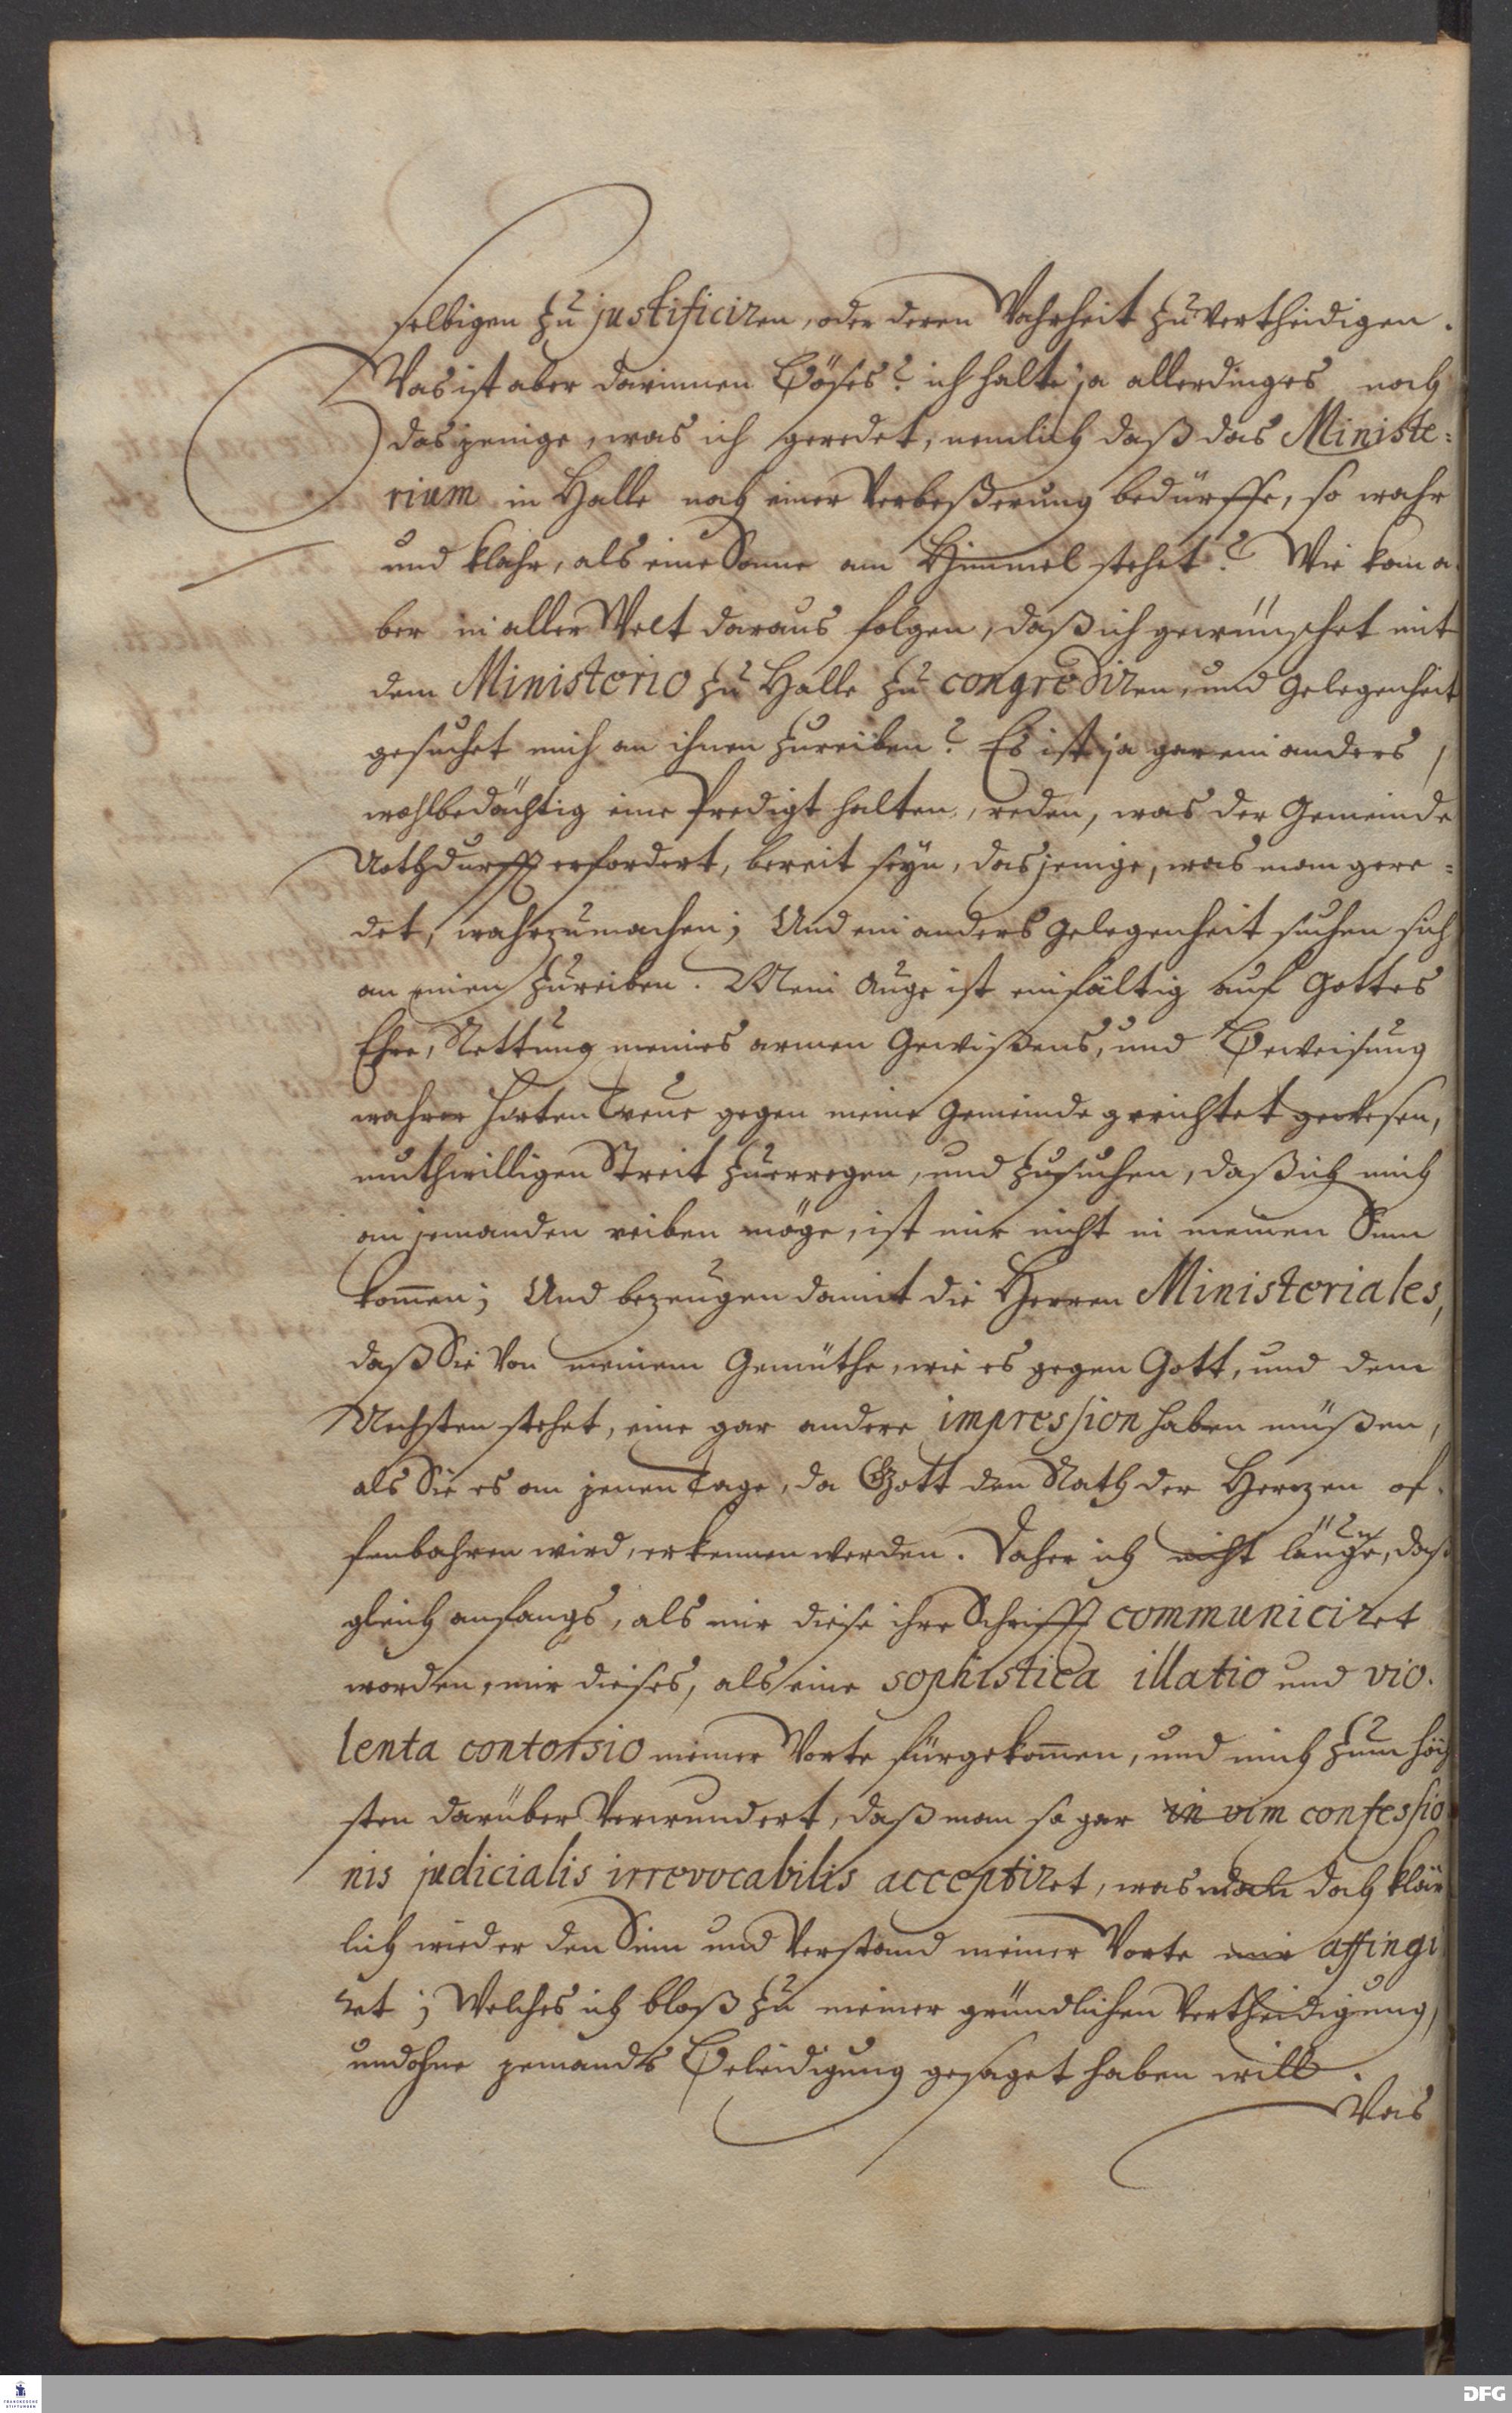 selbigen zu justificiren, oder deren Wahrheit zu vertheidigen.
Was ist aber darinnen Böses? ich halte ja allerdinges noch
dasjenige, was ich geredet, nemlich daß das Ministe-
rium in Halle noch einer Verbeßerung bedürffe, so wahr
und klahr, als eine Sonne am Himmel stehet? Wie kan a-
ber in aller Welt daraus folgen, daß ich gewünschet mit
dem Ministerio zu Halle zu congrediren, und Gelegenheit
gesuchet mich an ihnen zureiben? Es ist ja gar ein anders,
wohlbedächtig eine Predigt halten, reden, was der Gemeinde
Nothdurfft erfordert, bereit seyn, dasjenige, was man gere-
det, wahrzumachen; Und ein anders Gelegenheit suchen sich
an einen zureiben. Mein Auge ist einfältig auf Gottes
Ehre, Rettung meines armen Gewißens, und Beweisung
wahrer Hirten Treue gegen meine Gemeinde gerichtet gewesen,
muthwilligen Streit zuerregen, und zusuchen, daß ich mich
an jemanden reiben möge, ist mir nicht in meinen Sinn
kommen; Und bezeugen damit die Herren Ministeriales,
daß Sie von meinem Gemüthe, wie es gegen Gott, und dem
Nechsten stehet, eine gar andere impression haben müßen,
als Sie es an jenen Tage, da Gott den Rath der Hertzen of-
fenbahren wird, erkennen werden. Daher ich nicht läugne, daß
gleich anfangs, als mir diese ihre Schrifft communiciret
worden, mir dieses, als eine sophistica illatio und vio-
lenta contorsio meiner Worte fürgekommen, und mich zum höch
sten darüber verwundert, daß man so gar in vim confessio
nis judicialis irrevocabilis acceptiret, was man doch klär
lich wieder den Sinn und Verstand meiner Worte mir affingi
ret; Welches ich bloß zu meiner gründlichen Vertheidigung,
und ohne jemands Beleidigung gesaget haben will.
Was
FRANCKESCHE
STIFTUNGEN
DFG